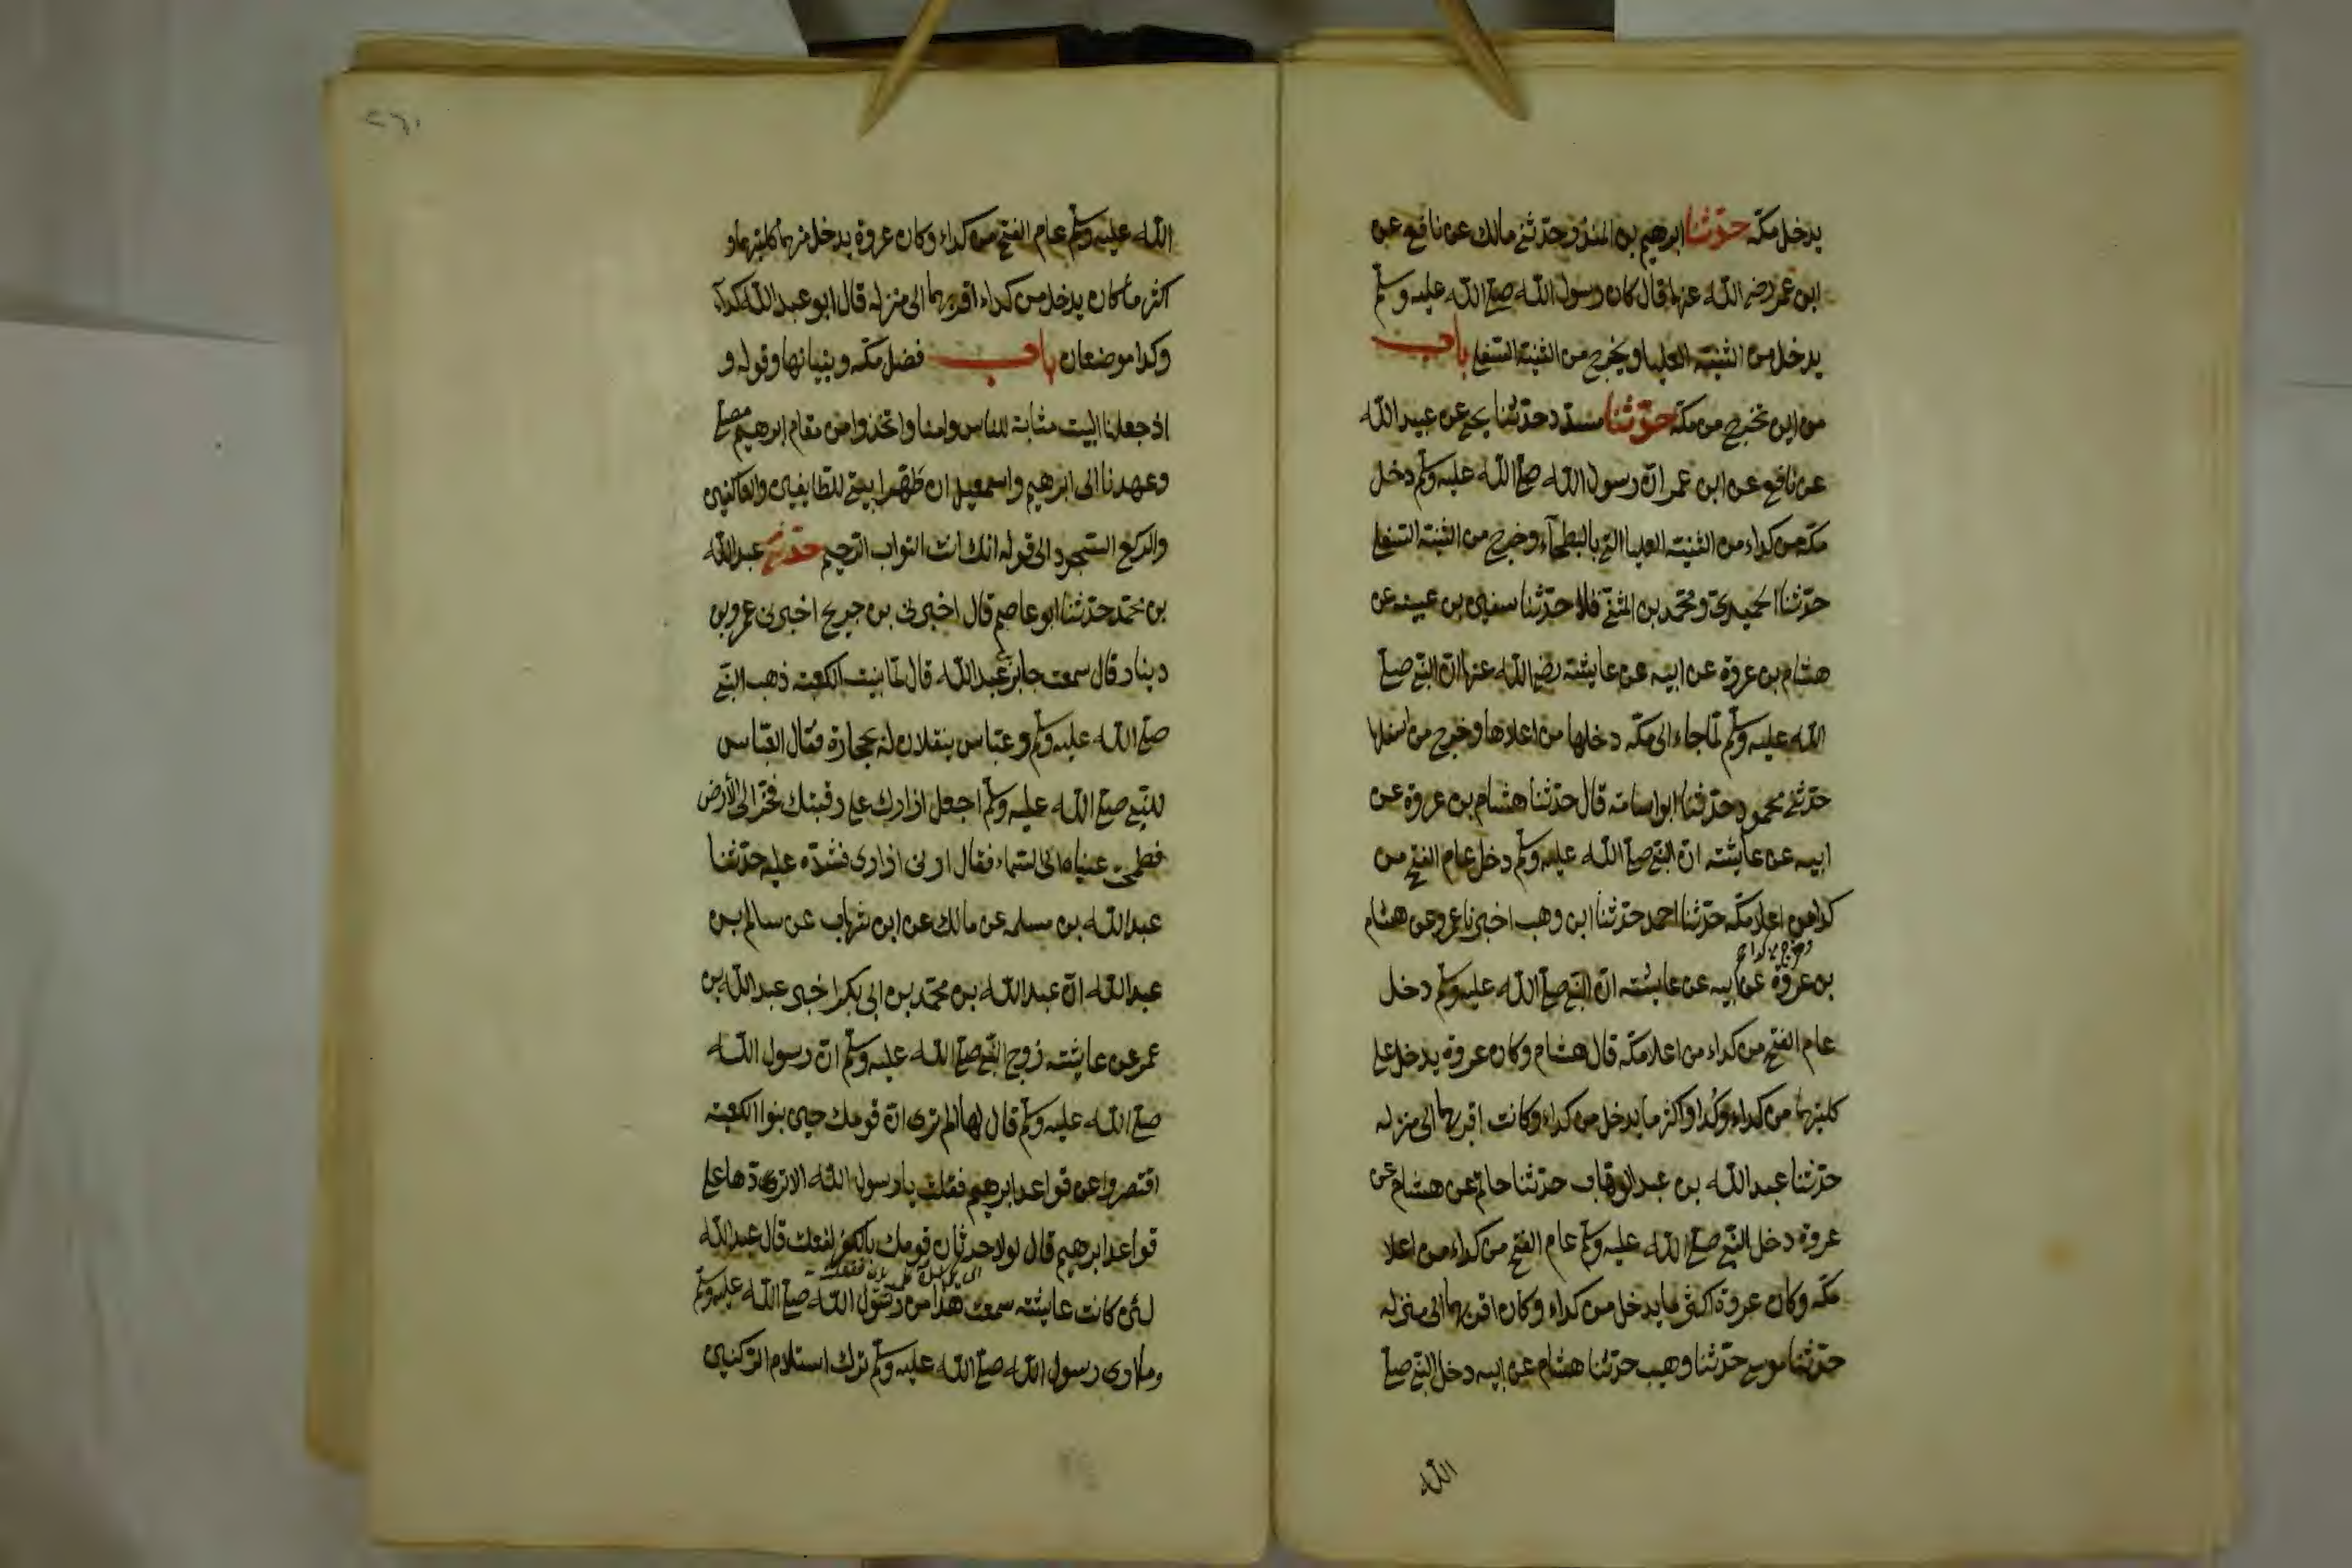 يدخل مكة حدثنا ابرهيم بن المنذر حدثني مالك عن نافع عن
ابن عمر رضي الله عنهما قال كان رسول الله صلى الله عليه وسلم
يدخل من الثنية العليا ويخرج من الثنية السفلى باب
من اين تخرج من مكة حدثنا مسدد حدثنا يحيى عن عبيد الله
عن نافع عن ابن عمر ان رسول الله صلى الله عليه وسلم دخل
مكة من كداء من الثنية العليا التي بالبطحاء وخرج من الثنية السفلى
حدثنا الحميدي ومحمد بن المثنى قالا حدثنا سفين بن عيينه عن
هشام بن عروة عن ابيه عن عايشة رضي الله عنها ان النبي صلى
الله عليه وسلم لما جاء الى مكة دخلها من اعلاها وخرج من اسفلها
حدثني محمود حدثنا ابو اسامة قال حدثنا هشام بن عروة عن
ابيه عن عايشة ان النبي صلى الله عليه وسلم دخل عام الفتح من
كدا من اعلا مكة حدثنا احمد حدثنا ابن وهب اخبرنا عمرو عن هشام
وخرج من كدا
بن عروة عن ابيه عن عايشة ان النبي صلى الله عليه وسلم دخل
عام الفتح من كداء من اعلا مكة قال هشام وكان عروة يدخل على
كليتهما من كداء وكدا واكثر ما يدخل من كداء وكانت اقربهما الى منزله
حدثنا عبد الله بن عبد الوهاب حدثنا حاتم عن هشام عن
عروة دخل النبي صلى الله عليه وسلم عام الفتح من كداء من اعلا
مكة وكان عروة اكثر ما يدخل من كداء وكان اقربهما الى منزله
حدثنا موسى حدثنا وهيب حدثنا هشام عن ابيه دخل النبي صلى
الله
٢٦١
الله عليه وسلم عام الفتح من كداء وكان عروة يدخل منهما كليهما و
اكثر ما كان يدخل من كداء اقربهما الى منزله قال ابو عبد الله كداء
وكدا موضعان باب فضل مكة وبنيانها وقوله و
اذ جعلنا البيت مثابة للناس وامنا واتخذوا من مقام ابرهيم مصلى
وعهدنا الى ابرهيم واسمعيل ان طهرا بيتي للطايفين والعاكفين
والركع السجود الى قوله انك انت التواب الرحيم حدثني عبد الله
بن محمد حدثنا ابو عاصم قال اخبرني بن جريج اخبرني عمرو بن
دينار قال سمعت جابر بن عبد الله قال لما بنيت الكعبة ذهب النبي
صلى الله عليه وسلم وعباس ينقلان له بحجارة فقال العباس
للنبي صلى الله عليه وسلم اجعل ازارك على رقبتك فخر الى الأرض
فطمحت عيناه الى السماء فقال ارني ازاري فشده عليه حدثنا
عبد الله بن مسلمه عن مالك عن ابن شهاب عن سالم بن
عبد الله ان عبد الله بن محمد بن ابي بكر اخبر عبد الله بن
عمر عن عايشة زوج النبي صلى الله عليه وسلم ان رسول الله
صلى الله عليه وسلم قال لها الم ترى ان قومك حين بنوا الكعبة
اقتصروا عن قواعد ابرهيم فقلت يا رسول الله الا تردها على
قواعد ابرهيم قال لولا حدثان قومك بالكفر لفعلت قال عبد الله
لئن كانت عايشة سمعت هذا من رسول الله صلى الله عليه وسلم
وما ارى رسول الله صلى الله عليه وسلم ترك استلام الركنين